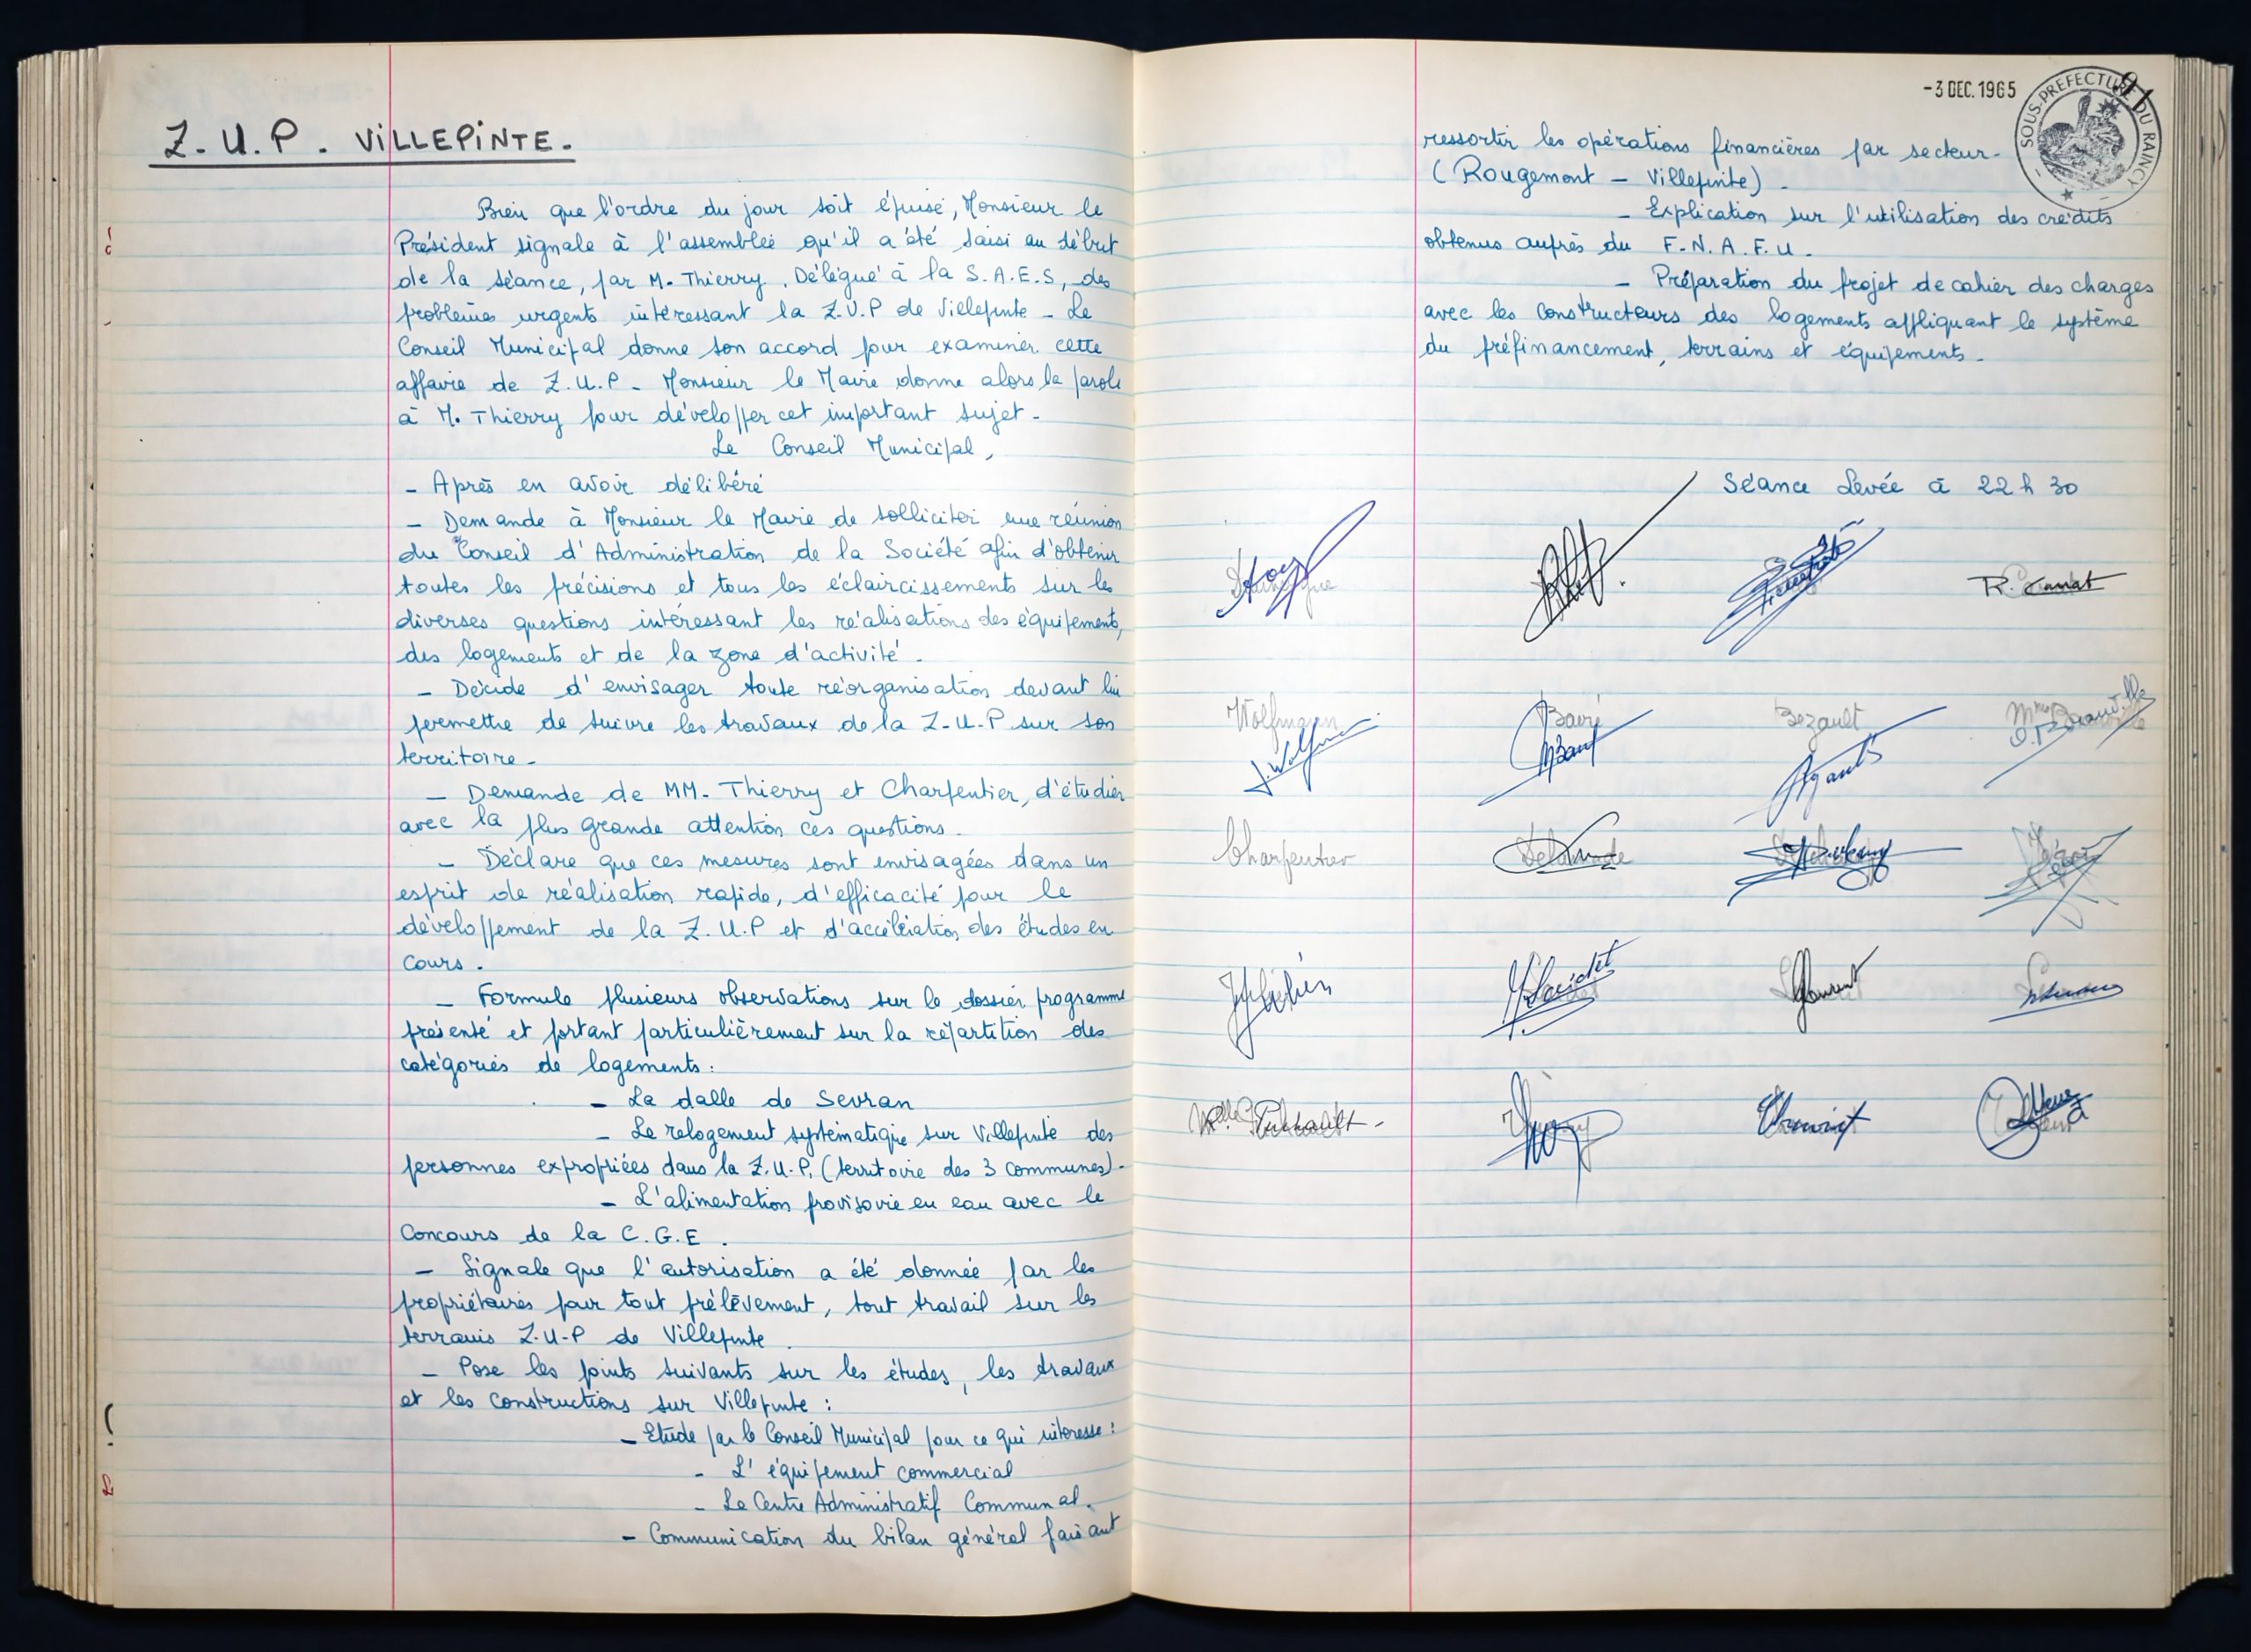 Z.U.P. VILLEPINTE.
Bien que l'ordre du jour soit épuisé, Monsieur le
Président signale à l'assemblée qu'il a été saisi au début
de la séance, par M. Thierry, Délégué à la S.A.E.S, des
problèmes urgents intéressant la Z.U.P de Villepinte - Le
Conseil Municipal donne son accord pour examiner cette
affaire de Z.U.P - Monsieur le Maire donne alors la parole
à M. Thierry pour développer cet important sujet -
Le Conseil Municipal,
- Après en avoir délibéré
- Demande à Monsieur le Maire de solliciter une réunion
du Conseil d'Administration de la Société afin d'obtenir
toutes les précisions et tous les éclaircissements sur les
diverses questions intéressant les réalisations des équipements,
des logements et de la zone d'activité.
- Décide d'envisager toute réorganisation devant lui
permettre de suivre les travaux de la Z-U-P sur son
territoire -
- Demande de MM. Thierry et Charpentier, d'étudier
avec la plus grande attention ces questions.
- Déclare que ces mesures sont envisagées dans un
esprit de réalisation rapide, d'efficacité pour le
développement de la Z.U.P et d'accélération des études en
cours.
- Formule plusieurs observations sur le dossier programme
présenté et portant particulièrement sur la répartition des
catégories de logements :
- La dalle de Sevran
- Le relogement systématique sur Villepinte des
personnes expropriées dans la Z.U.P. (territoire des 3 communes) -
- L'alimentation provisoire en eau avec le
Concours de la C.G.E.
- Signale que l'autorisation a été donnée par les
propriétaires pour tout prélèvement, tout travail sur les
terrains Z.U-P de Villepinte.
- Pose les points suivants sur les études, les travaux
et les constructions sur Villepinte :
- Etude par le Conseil Municipal pour ce qui intéresse :
- L'équipement commercial
- Le Centre Administratif Communal.
- Communication du bilan général faisant
-3 DEC. 1965
SOUS-PREFECTURE DU RAINCY
ressortir les opérations financières par secteur -
(Rougemont - Villepinte) -
- Explication sur l'utilisation des crédits
obtenus auprès du F.N.A.F.U.
- Préparation du projet de cahier des charges
avec les constructeurs des logements appliquant le système
du préfinancement, terrains et équipements -
Séance Levée à 22 h 30
R. Canat
Wolfmann Bavré Bezault
Charpentier Delalande
Laurent